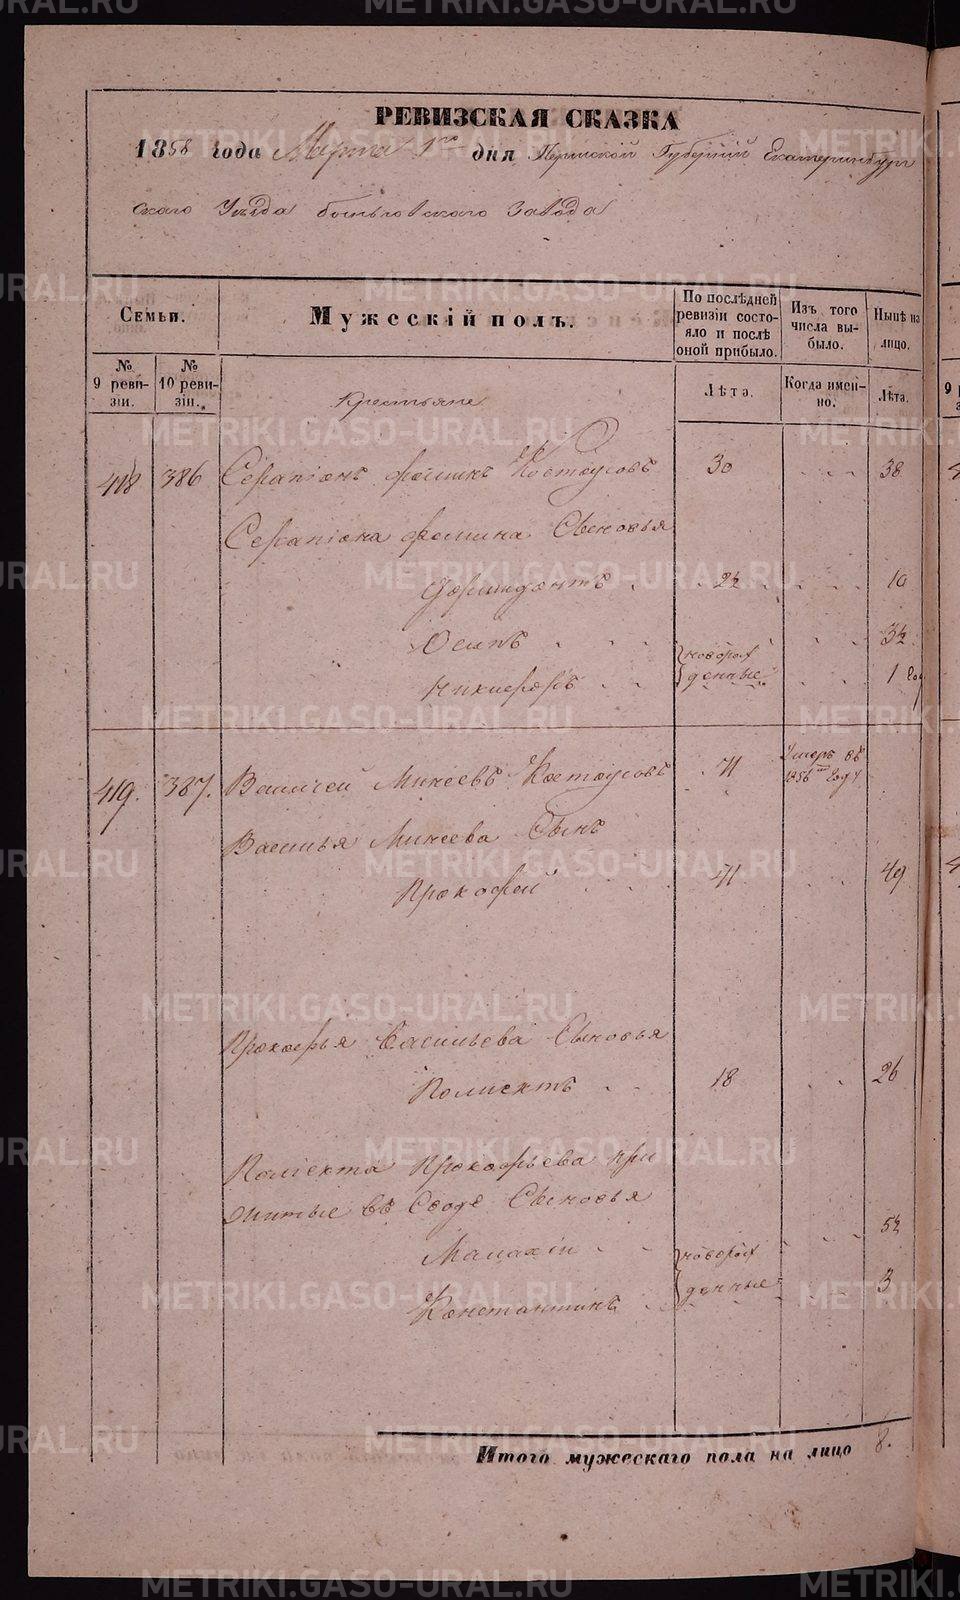 РЕВИЗСКАЯ СКАЗКА
1858 года Марта 1го дня Пермской Губернии Екатеринбург
скаго Уезда завода
Семьи.
Мужескій полъ.
По послѣдней ревизіи состояло и послѣ оной прибыло.
Изъ того числа выбыло.
Нынѣ на лицо.
№ 9 ревизіи.
№ 10 ревизіи.
Лѣта.
Когда именно.
Лѣта.
Крестьяне
418 386 Серапіонъ Фоминъ Костоусовъ 30 38
Серапіона Фомина Сыновья
2½ 10
Осипъ 3½
Никифоръ новорожденные 1 год
419. 387. Василей Микеевъ Костоусовъ 71 Умеръ въ 1856 году
Василья Микеева Сынъ
Прокофей 41 49
Прокофья Васильева Сыновья
Полиектъ 18 26
Полиекта Прокофьева при
житые въ Сыновья
Малахіи 5½
Константинъ новорожденные 3
Итого мужескаго пола на лицо 8.
METRIKI.GASO-URAL.RU